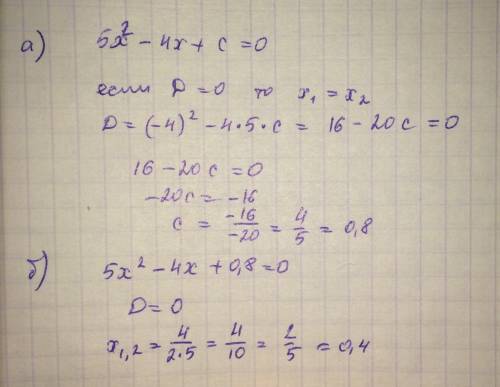 а) 5x² - 4x + c = 0
если D = 0 то x₁ = x₂
D = (-4)² - 4·5·c = 16 - 20c = 0
16 - 20c = 0
-20c = -16
c = -16/-20 = 4/5 = 0,8
б) 5x² - 4x + 0,8 = 0
D = 0
x₁,₂ = 4/2·5 = 4/10 = 2/5 = 0,4